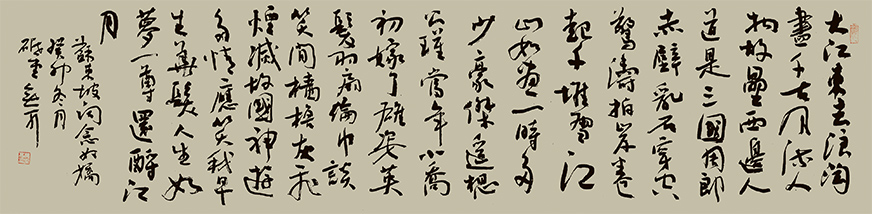 大江東去浪淘
盡千古風流人
物故壘西邊人
道是三國周郎
赤壁亂石穿空
驚濤拍岸卷
起千堆雪江
山如畫一時多
少豪傑遥想
公瑾當年小喬
初嫁了雄姿英
發羽扇綸巾談
笑間檣櫓灰飛
煙滅故國神遊
多情應笑我早
生華髮人生如
夢一尊還酹江
月
蘇東坡詞念奴嬌
癸卯冬月